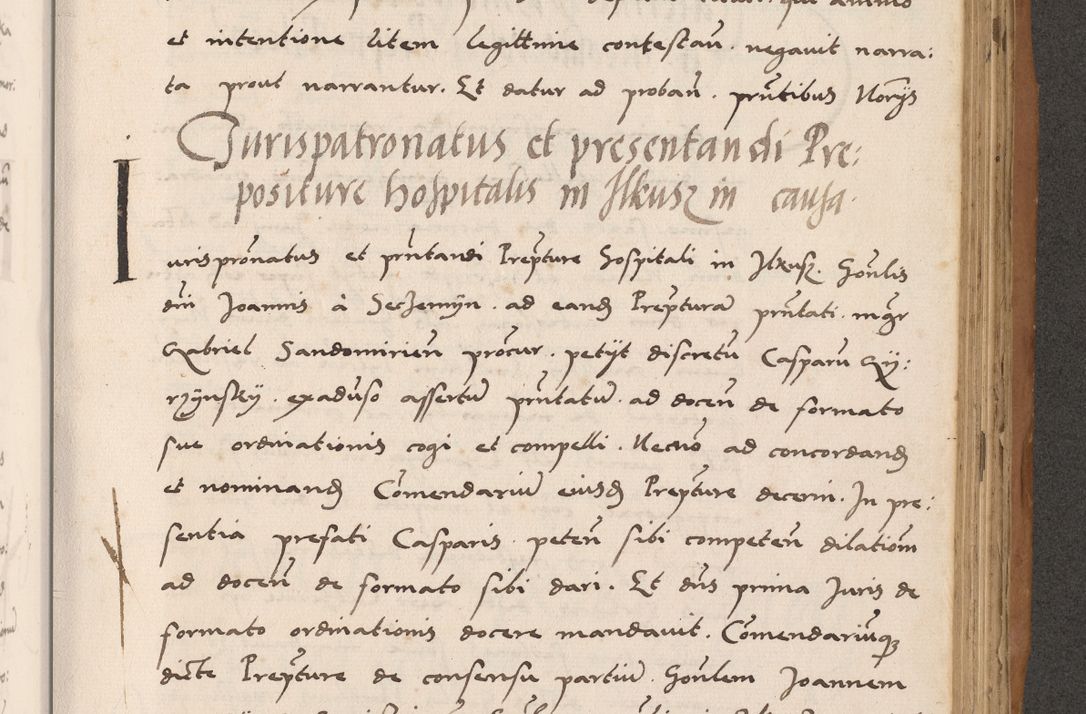 et intentione litem legittime contestan̄. negavit narra:
ta prout narrantur. Et datur ad proban̄. pn̄tibus Norijs
Jurispatronatus et presentandi Pre:
positure hospitalis in Ilkusz in causa
Iurispr̄onatus et pn̄tandi Prep̄ture hospitali in Ilkusz. hon̄lis
dn̄i Joannis à Seczemijn. ad eand̄ Prep̄turā pn̄tati. mgr̄
Gabriel Sandomirien̄ procur. petijt discretū Casparū Gij:
rzÿnskÿ. ex aduso assertū pn̄tatū. ad docen̄ de formato
sue ordinationis cogi et compelli. Necno ad concordand̄
et nominand̄ Com̄endariū eiusd̄ Prep̄ture decerni. In pre:
sentia prefati Casparis. peten̄ sibi competen̄ dilationē
ad docen̄ de formato sibi dari. Et dn̄s prima Juris de
formato ordinationis docere mandavit. Com̄endariūq̄
dictē Prep̄ture de consensu partiū. hon̄lem Joannem